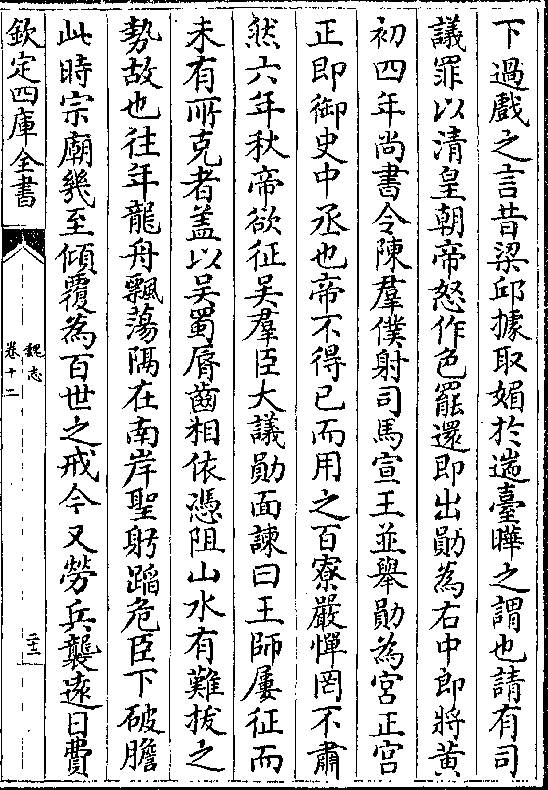 下過戲之言昔梁邱據取媚於遄臺曄之謂也請有司
議罪以清皇朝帝怒作色罷還即出勛為右中郎將黃
初四年尚書令陳羣僕射司馬宣王並舉勛為宮正宮
正即御史中丞也帝不得已而用之百寮嚴憚罔不肅
然六年秋帝欲征吳羣臣大議勛面諫曰王師屢征而
未有所克者盖以吳蜀脣齒相依憑阻山水有難拔之
勢故也往年龍舟飄蕩隔在南岸聖躬蹈危臣下破膽
此時宗廟幾至傾覆為百世之戒今又勞兵襲遠日費
欽定四庫全書
魏志
卷十二
二十三